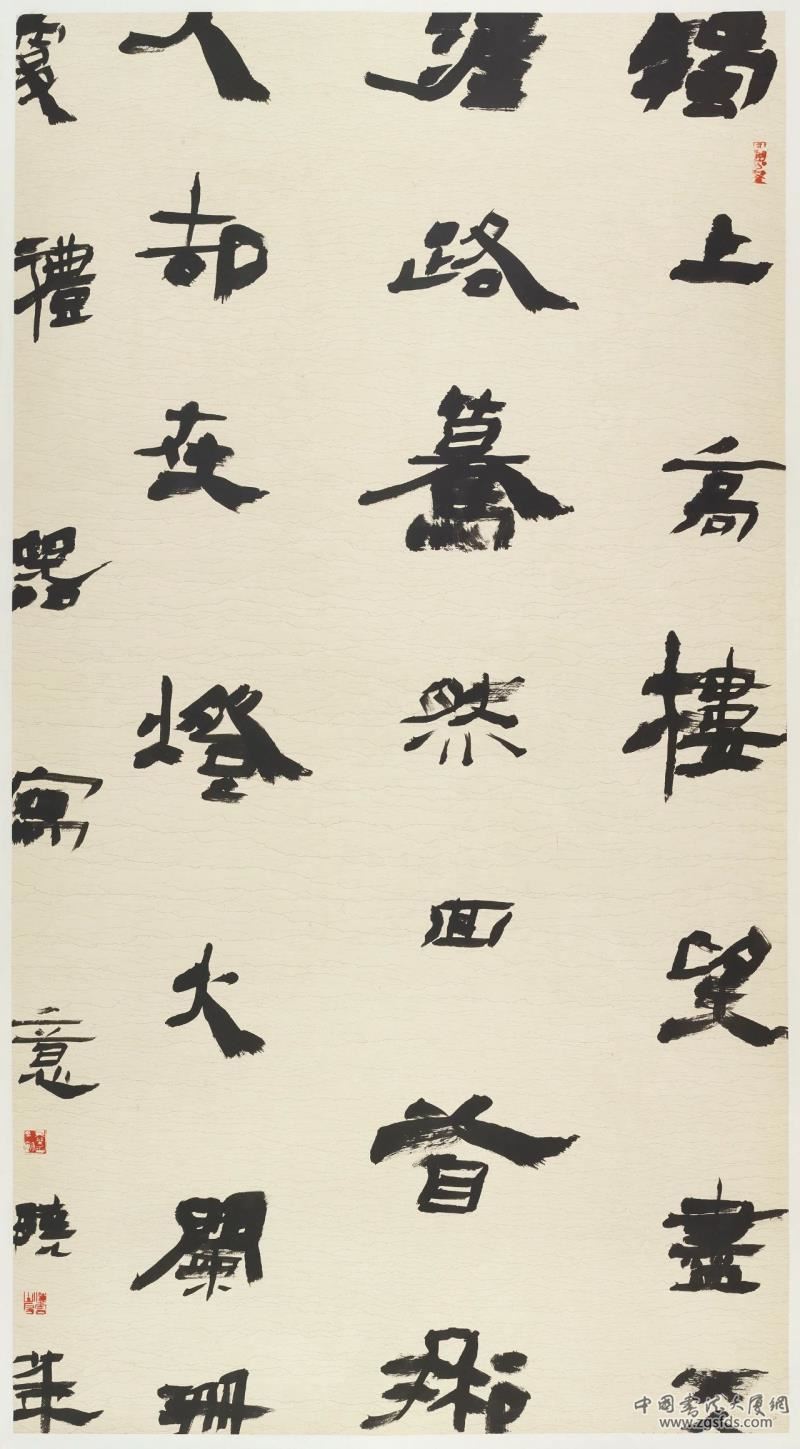 獨上高樓望盡天
涯路驀然回首那
人却在燈火闌珊
處禮器寫意曉
中國書法大廈網
www.zgsfds.com